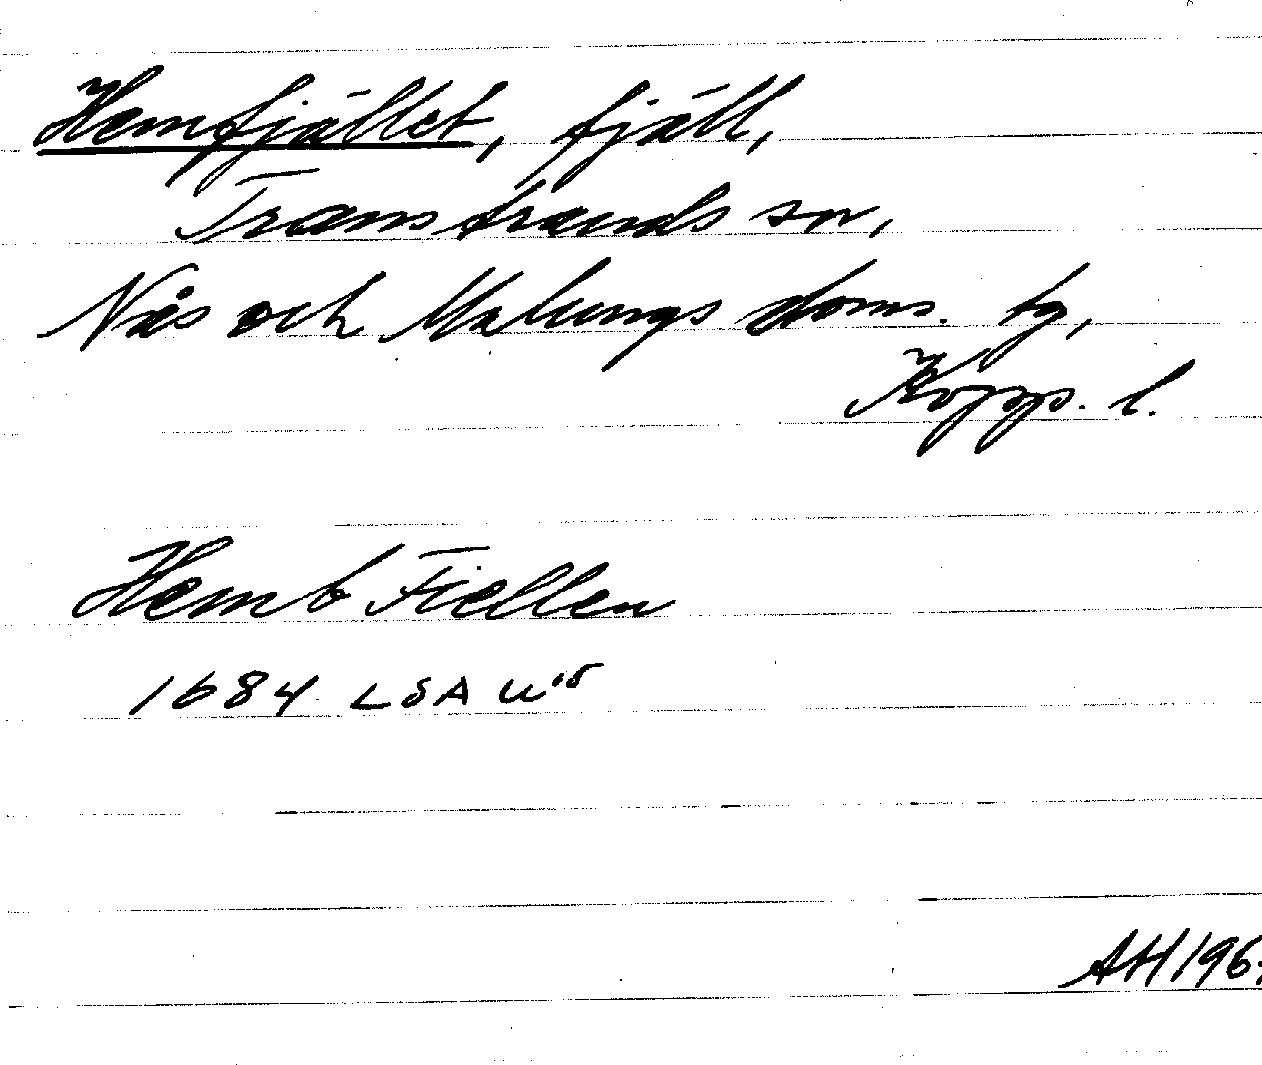 Hemfjället, fjäll,
Transtrands sn,
Nås och Malungs doms. tg,
Kopp. l.
Hemb Fiellen
1684 LSA U
AH 196